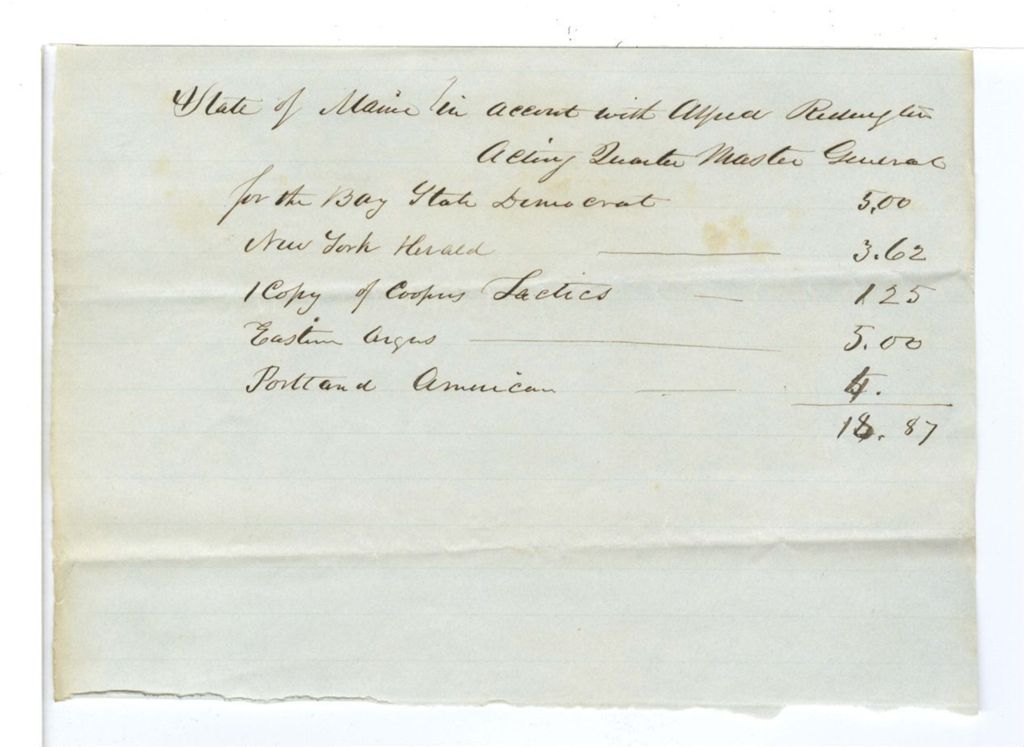 State of Maine in account with Alfred Redington
Acting Quarter Master General
for the Bay State Democrat 5,00
New York Herald 3.62
1 Copy of Coopers Tactics 1 25
Eastern Argus 5.00
Portland American 4.
18.87